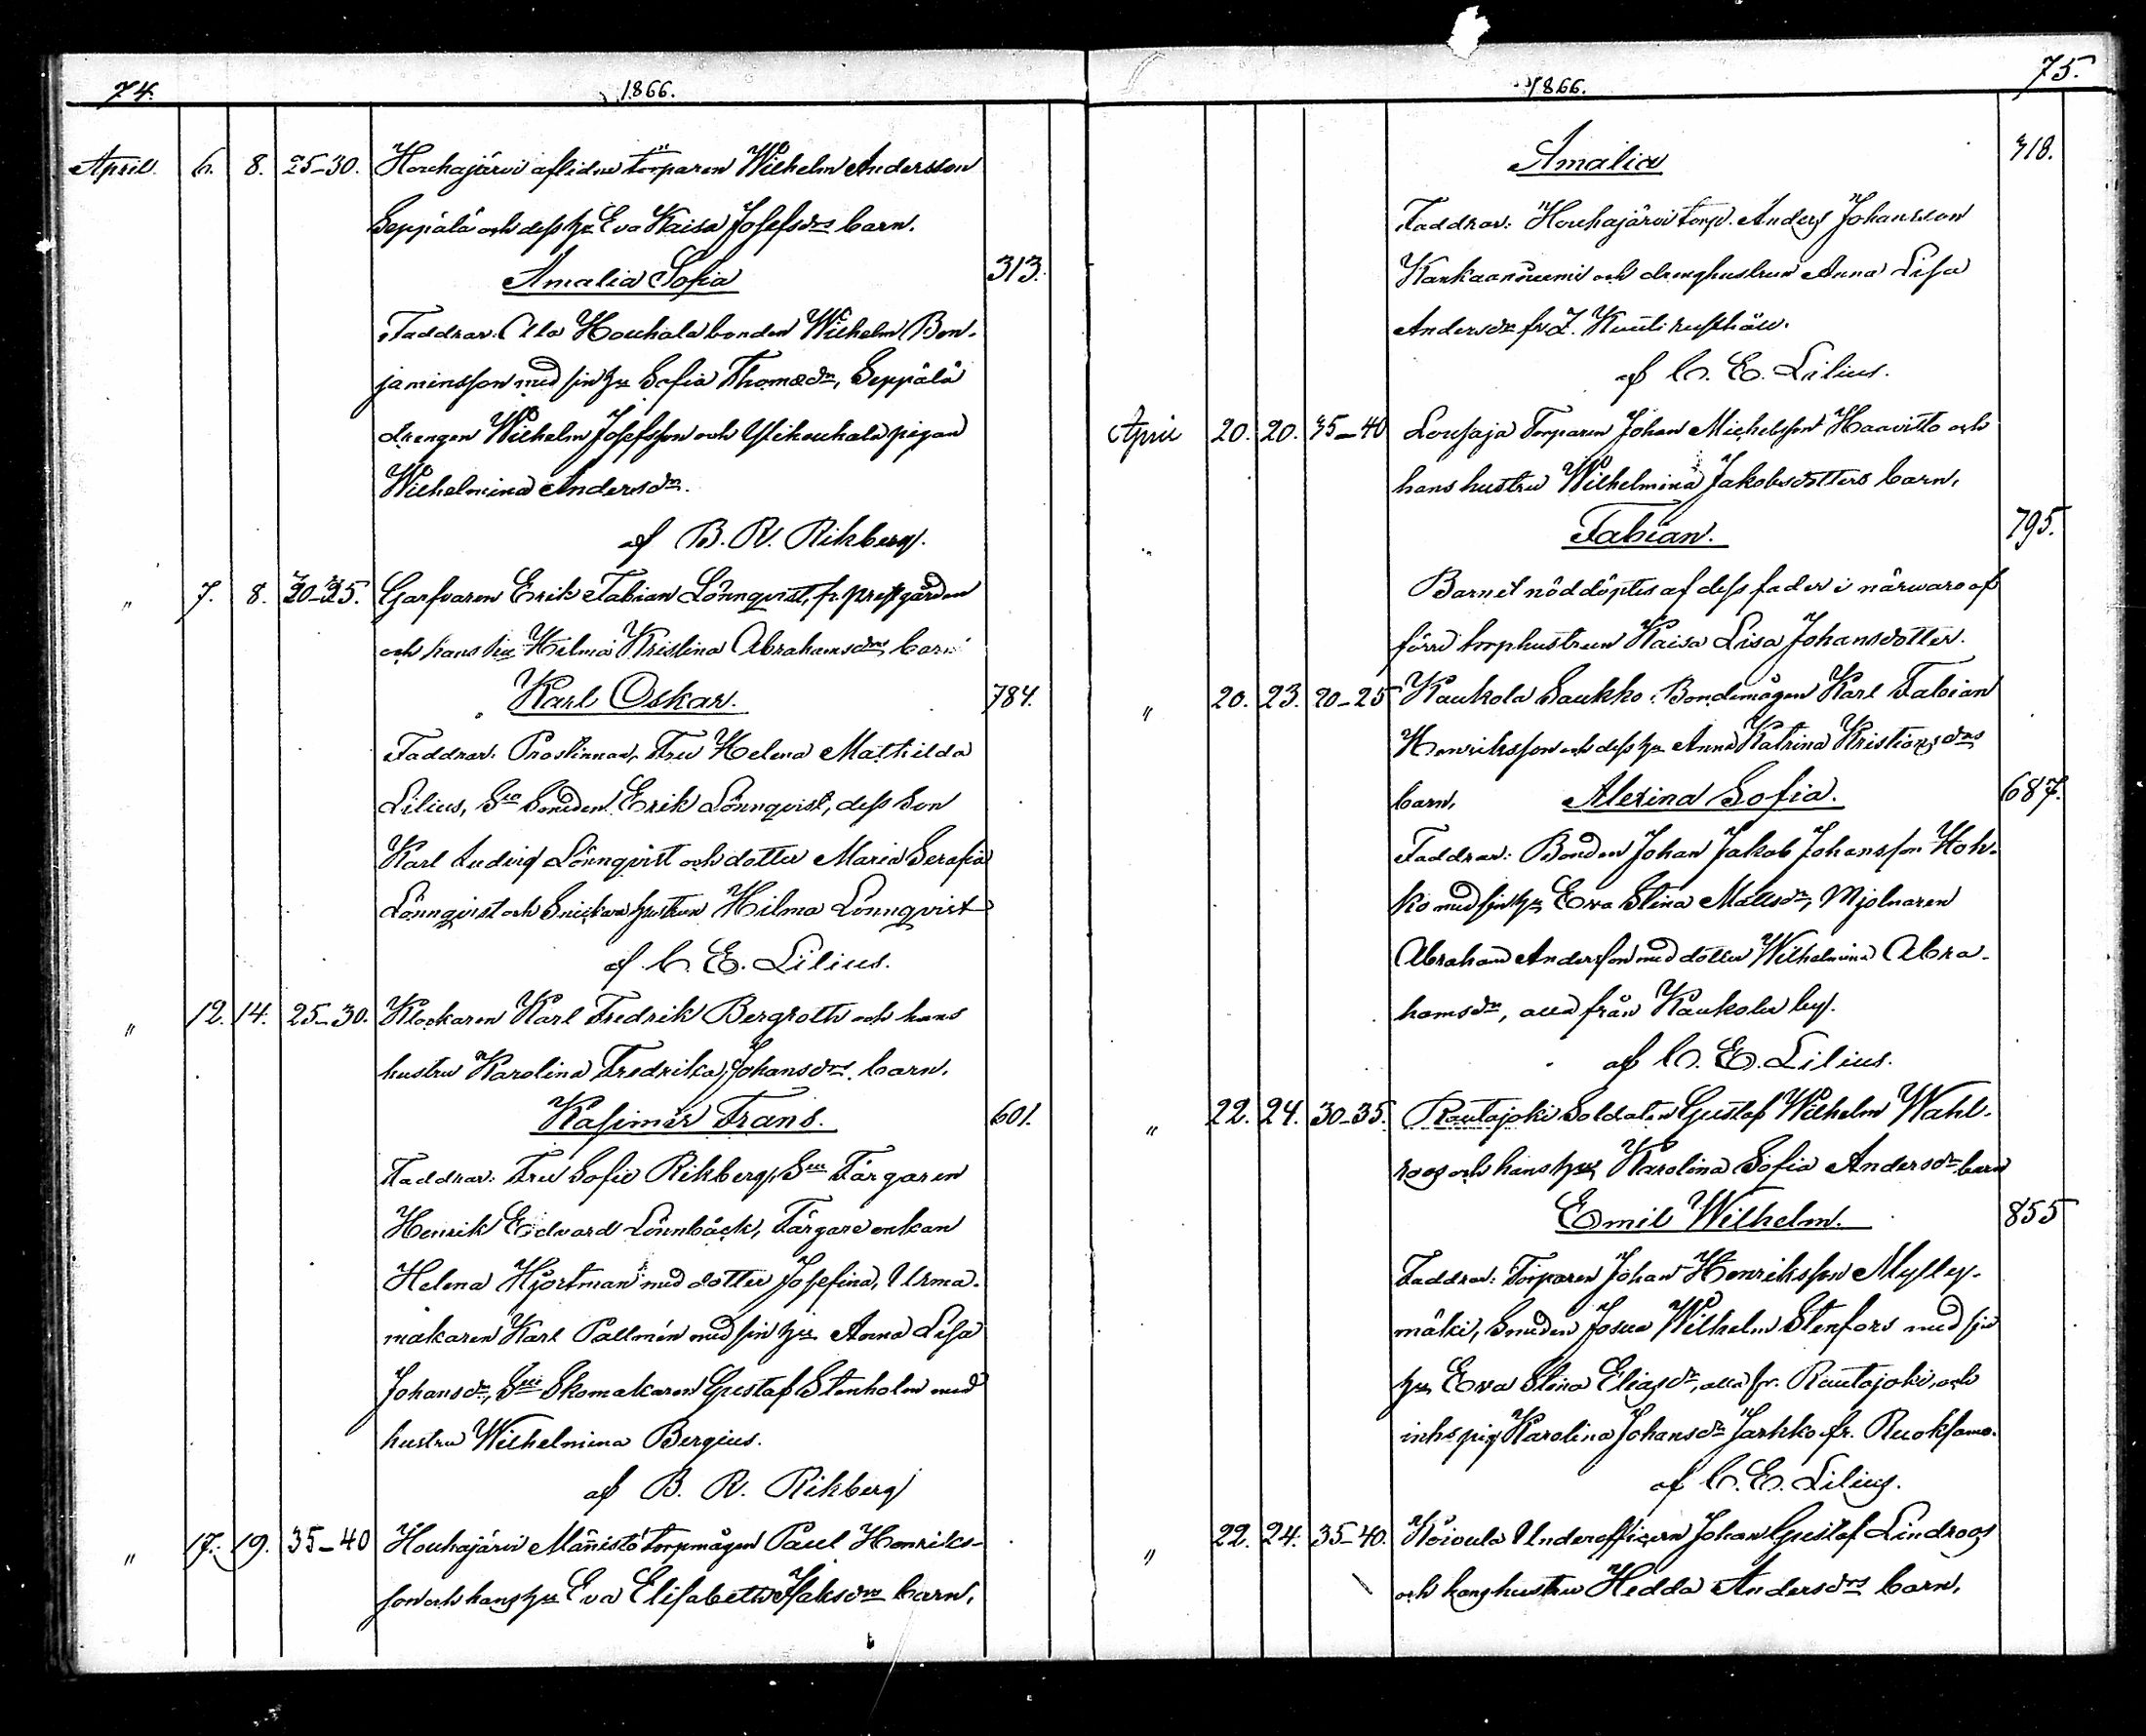 74.
1866.
April. 6. 8. 25-30. Houhajärvi aflidne torparen Wilhelm Andersson
Seppälä och dess hu Eva Kaisa Josefsdrs barn.
Amalia Sofia 313.
Faddrar: Ala Houhala bonden Wilhelm Ben-
jaminsson med sin hu Sofia Thomasdr, Seppälä
drengen Wilhelm Josefsson och Ylihouhala pigan
Wilhelmina Andersdr.
af B. R. Rikberg.
" 7. 8. 20-25. Garfvaren Erik Fabian Lönnqvist, fr. prestgården
och hans hu Helma Kristina Abrahamsdrs barn
Karl Oskar. 784.
Faddrar: Prostinnan, Fru Helena Mathilda
Lilius, Smeden Erik Lönnqvist, dess son
Karl Ludvig Lönnqvist och dotter Maria Serafia
Lönnqvist och Snickare hustrun Hilma Lönnqvist
af C. E. Lilius.
" 12. 14. 25-30. Klockaren Karl Fredrik Bergroth och hans
hustru Karolina Fredrika Johansdrs barn.
Kasimir Frans. 601.
Faddrar: Fru Sofie Rikberg, Färgaren
Henrik Edvard Lönnbäck, Färgare enkan
Helena Hjortman med dotter Josefina, Urma-
makaren Karl Pallmén med sin hu Anna Lisa
Johansdr, Skomakaren Gustaf Stenholm med
hustru Wilhelmina Bergius.
af B. R. Rikberg
" 17. 19. 35-40 Houhajärvi Männistö torpmågen Paul Henriks-
son och hans hu Eva Elisabeth Isaksdrs barn,
75.
1866.
Amalia 318.
Faddrar: Houhajärvi torp. Anders Johansson
Kankaansuumi och dreng hustrun Anna Lisa
Andersdr fr
af C. E. Lilius.
April 20. 20. 35-40 Lousaja Torparen Johan Michelsson Haavisto och
hans hustru Wilhelmina Jakobsdotters barn,
Fabian. 795.
Barnet nöddöptes af dess fader i närwaro af
förre torphustrun Kaisa Lisa Johansdotter.
" 20. 23. 20-25 Kaukola Saukko Bondemågen Karl Fabian
Henriksson och dess hu Anna Katrina Kristiansdrs
barn, Alexina Sofia. 687.
Faddrar: Bonden Johan Jakob Johansson Hoh-
ko med sin hu Eva Stina Mattsdr, Mjolnaren
Abraham Andersson med dotter Wilhelmina Abra-
hamsdr, alla från Kaukola by.
af C. E. Lilius.
" 22. 24. 30-35. Rautajoki Soldaten Gustaf Wilhelm Wahl-
roos och hans hu Karolina Sofia Andersdrs barn
Emil Wilhelm. 855
Faddrar: Torparen Johan Henriksson Mylly-
mäki, Smeden Josua Wilhelm Stenfors med sin
hu Eva Stina Eliasdr, alla fr. Rautajoki, och
inhs pig Karolina Johansdr Jarkko fr. Ruoksamo.
af C. E. Lilius.
" 22. 24. 35-40. Koivula Underofficern Johan Gustaf Lindroos
och hans hustru Hedda Andersdrs barn,